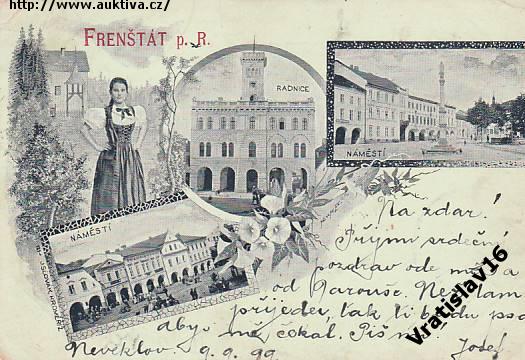 http://www.auktiva.cz/
FRENŠTÁT p. R.
RADNICE
NÁMĚSTÍ
NÁMĚSTÍ
Na zdar!
Přijmi srdečn
pozdrav ode mě a
od Jarouše. Ne
přijedem, tak ti budu psa
aby mě čekal. Piš
Josef
9. 9. 99
Vratislav16